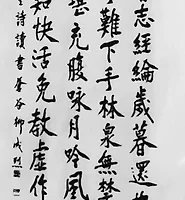 志經綸歲暮還
難下手林泉無禁
堪充腹咏月吟風
知快活免敎虛作
詩讀書